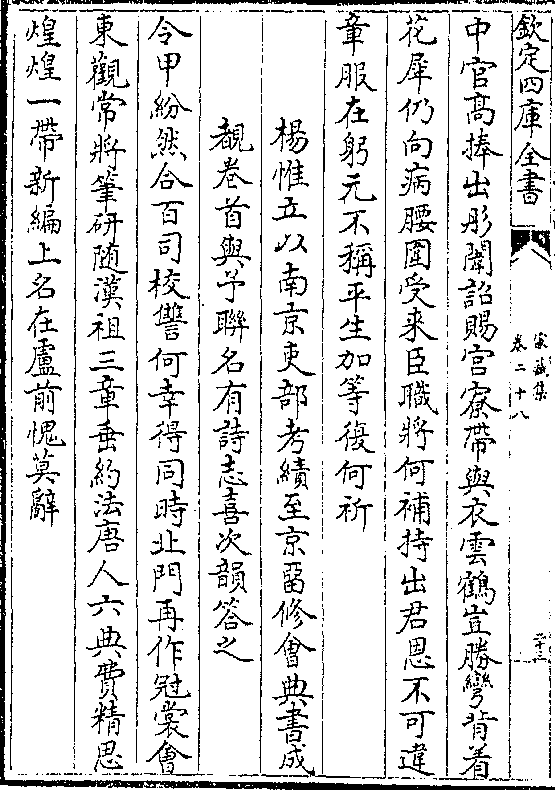 欽定四庫全書
家藏集
卷二十八
二十三
中官髙捧出彤闈詔賜宫寮帶與衣雲鶴豈勝彎背着
花犀仍向病腰圍受来臣職將何補持出君恩不可違
章服在躬元不稱平生加等復何祈
楊惟立以南京吏部考績至京留修㑹典書成
覩卷首與予聯名有詩志喜次韻答之
令甲紛然合百司校讐何幸得同時北門再作冠裳㑹
東觀常將筆研随漢祖三章垂約法唐人六典費精思
煌煌一帶新編上名在盧前愧莫辭